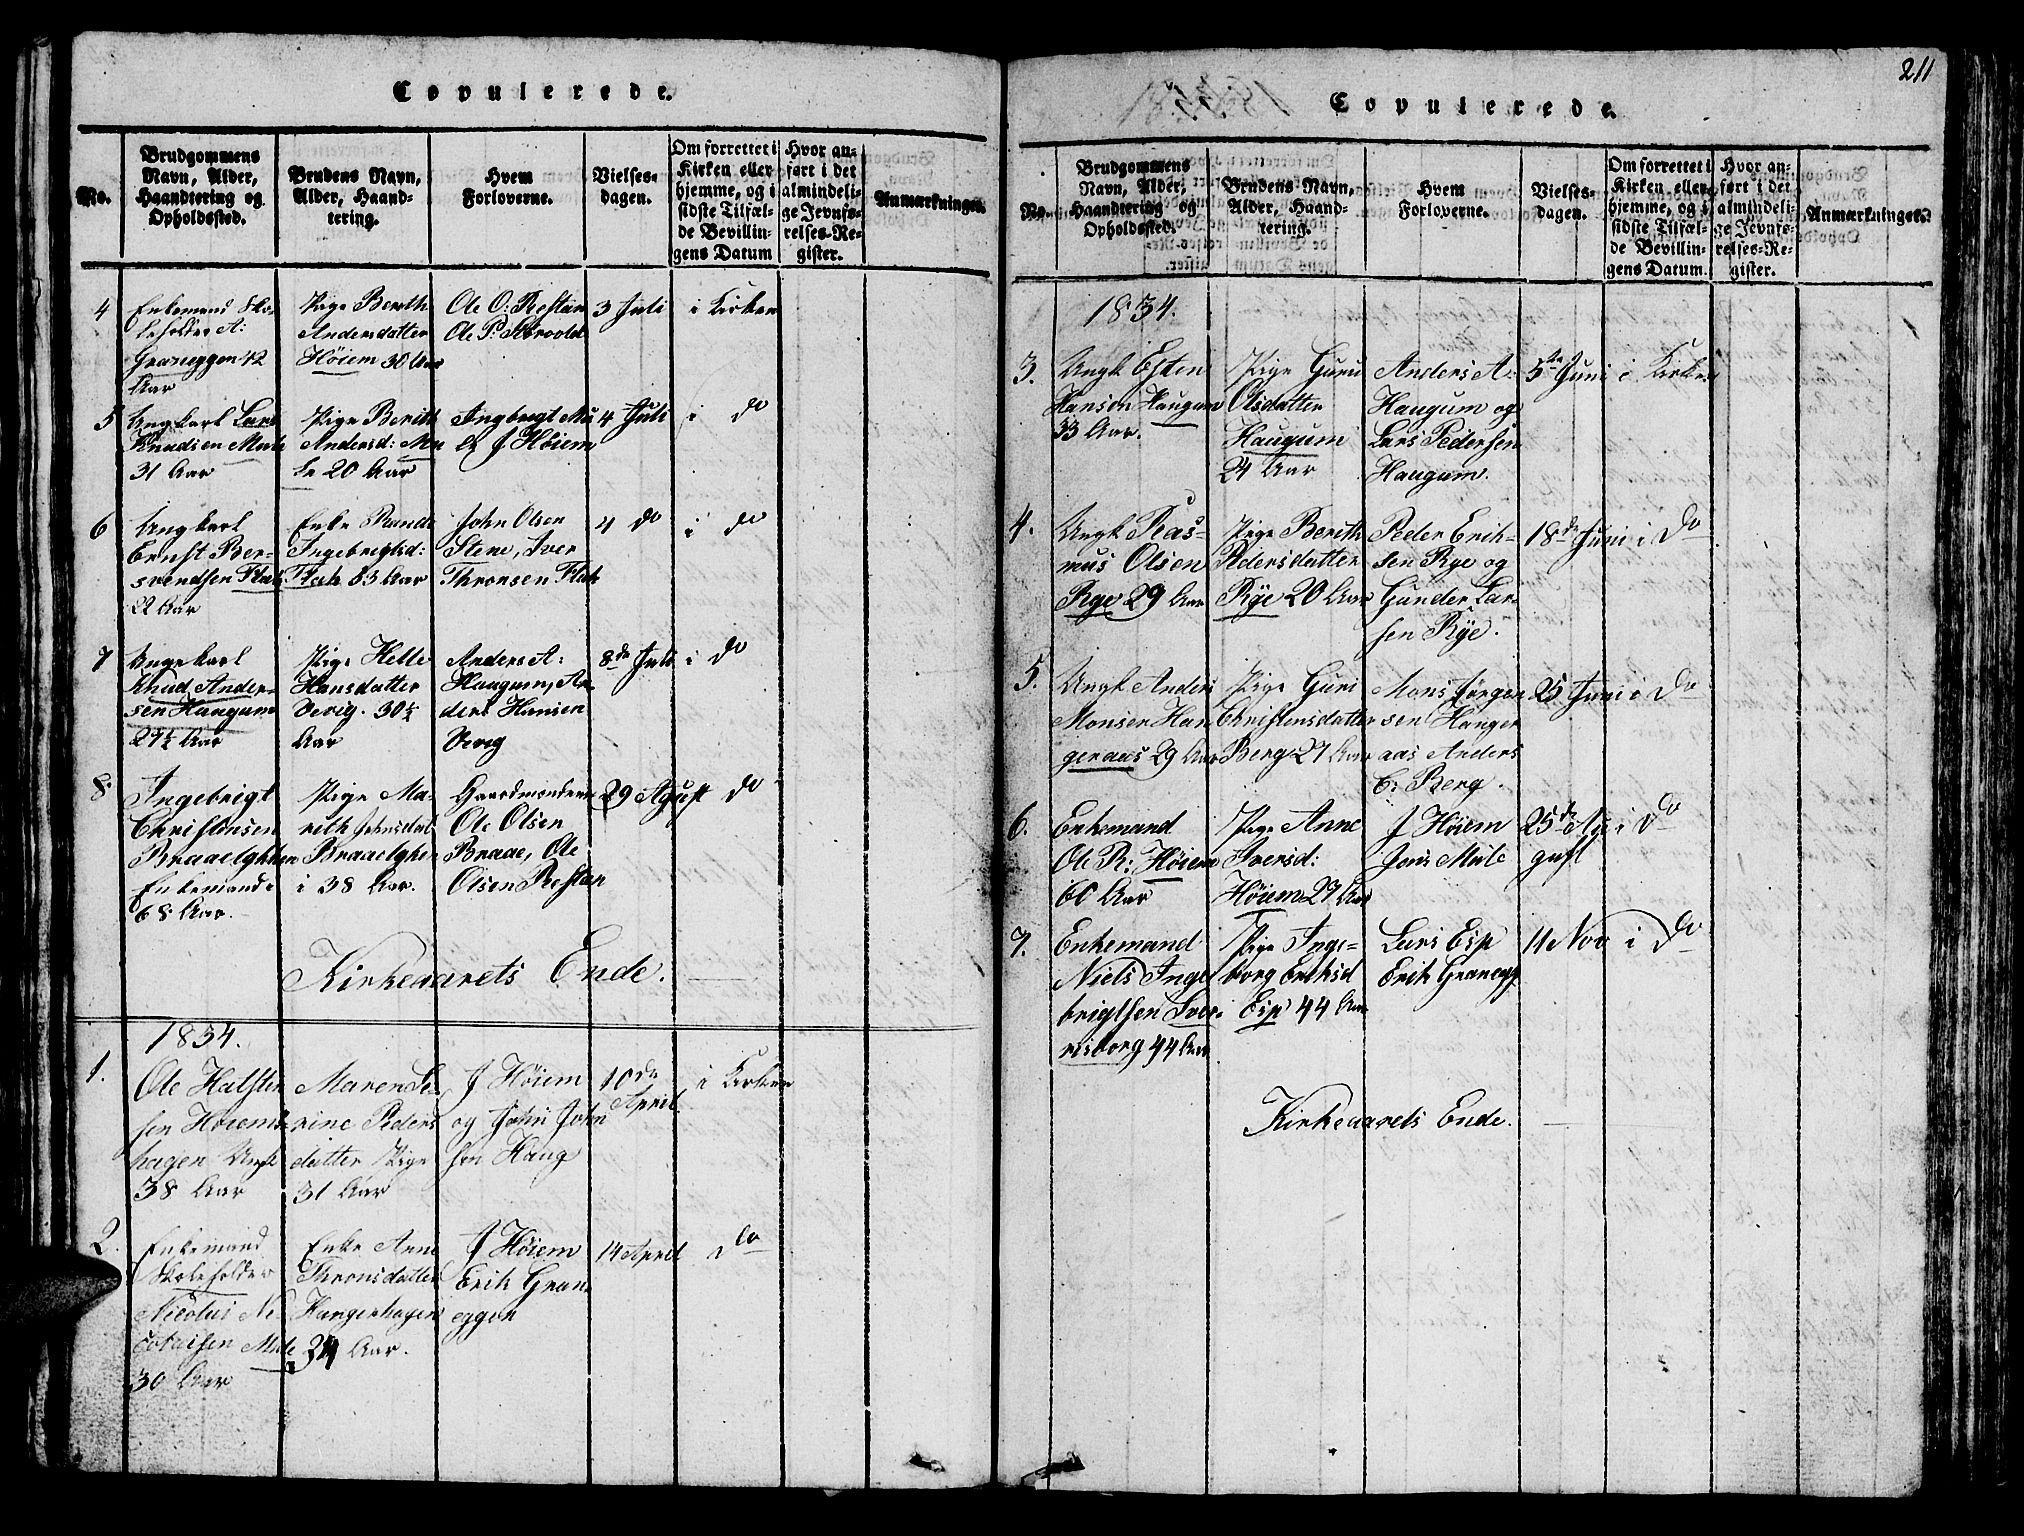 Copulerede.
No.
Brudgommens
Navn, Alder,
Haandtering og
Opholdssted.
Brudens Navn,
Alder, Haand-
tering.
Hvem
Forloverne.
Vielses-
dagen.
Om forrettet i
Kirken eller
hjemme, og i
sidste Tilfæl-
de Bevillin-
gens Datum
Hvor an-
ført i det
almindeli-
ge Jevnfø-
relses-Re-
gister.
Anmærkninger.
4
Enkemand Sko-
leholder A:
Graneggen 42
Aar
Pige Berith
Andersdatter
Höiem 30 Aar
Ole O: Restan
Ole P:
3 Juli
i Kirken
5
Ungkarl Lars
Knudsen Mule
31 Aar
Pige Berith
Andersd: Mu
le 20 Aar
Ingbrigt Mu
le J Höiem
4 Juli
i do
6
Ungkarl
Ernst Ber-
svendsen Flak
22 Aar
Enke Rande
Ingebrigtsd:
Flak 33 Aar
John Olsen
Stene, Iver
Thronsen Flak
4 do
i do
7
Ungekarl
Knud Ander-
sen Haugum
27½ Aar
Pige Helle
Hansdatter
Vevig. 30½
Aar
Anders A:
Haugum, An
ders Hansen
Vevig
8de Juli
i do
8
Ingebrigt
Christensen
Braaelghken
Enkemand
68 Aar.
Pige Ma-
rith Johnsdat
Braaelghen
i 38 Aar.
Gaardmændene
Ole Olsen
Braae, Ole
Olsen Restan
29 Agust
do
Kirkeaarets Ende.
1834.
1.
Ole Halsten
sen Höiems-
hagen Ungk
38 Aar
Maren Se-
rine Peders
datter Pige
31 Aar
J Höiem
og John John
sen Haug
10de
April
i Kirken
2.
Enkemand
Skoleholder
Nicolai Ni-
colaisen Mule
30 Aar
Enke Anne
Thronsdatter
Hangerhagen
34 Aar.
J Höiem
Erik Gran
eggen
14 April
do
211
Copulerede.
No.
Brudgommens
Navn, Alder,
Haandtering og
Opholdssted.
Brudens Navn,
Alder, Haand-
tering.
Hvem
Forloverne.
Vielses-
dagen.
Om forrettet i
Kirken eller
hjemme, og i
sidste Tilfæl-
de Bevillin-
gens Datum.
Hvor an-
ført i det
almindeli-
ge Jevnfø-
relses-Re-
gister.
Anmærkninger.
1834.
3.
Ungk Esten
Hansen Haugum
33 Aar.
Pige Guru
Olsdatter
Haugum
24 Aar
Anders A:
Haugum og
Lars Pedersen
Haugum.
5te Juni
i Kirken
4.
Ungk Ras-
mus Olsen
Rye 29 Aar
Pige Berith
Pedersdatter
Rye 20 Aar
Peder Erik-
sen Rye og
Gunder Lar-
sen Rye.
18de Juni
i do
5.
Ungk Anders
Monsen Han
geraas 29 Aar
Pige Guri
Christensdatter
Berg 27 Aar
Mons Jörgen
sen Hanger
aas Anders
C: Berg.
25 Juni
i do
6.
Enkemand
Ole R: Höiem
60 Aar
Pige Anne
Iversd:
Höiem 27 Aar
J Höiem
Jens Mule
25de Au
gust
i do
7.
Enkemand
Niels Inge
brigtsen Sver-
risborg 44 Aar
Pige Inge-
borg Eriksd
Esp 44 Aar
Lars Esp
Erik Granegg
11 Nov
i do
Kirkeaarets Ende.